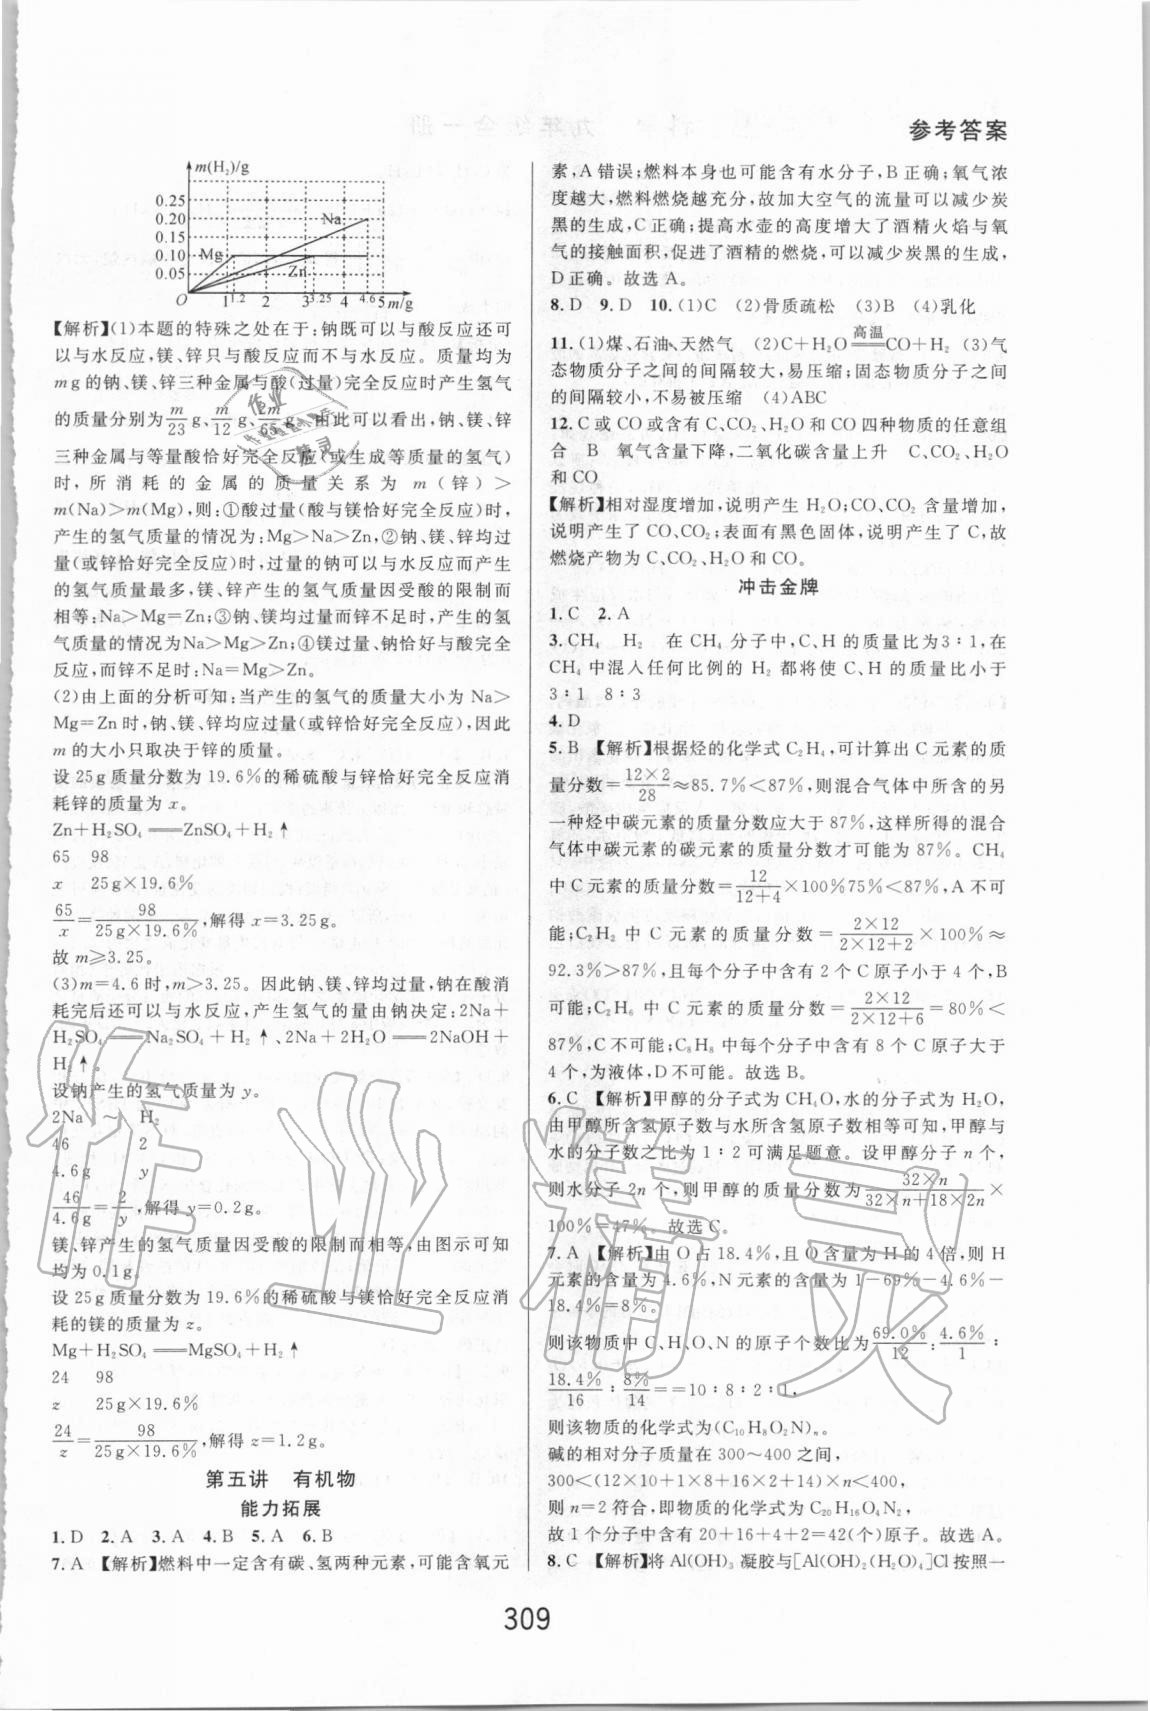 参考答案
m(H₂)/g
0.25
0.20
0.15
0.10
0.05
Na
Mg
Zn
O 1 1.2 2 3 3.25 4 4.6 5 m/g
【解析】(1)本题的特殊之处在于:钠既可以与酸反应还可
以与水反应,镁、锌只与酸反应而不与水反应。质量均为
m g的钠、镁、锌三种金属与酸(过量)完全反应时产生氢气
的质量分别为m/23 g、m/12 g、m/65 g,由此可以看出,钠、镁、锌
三种金属与等量酸恰好完全反应(或生成等质量的氢气)
时,所消耗的金属的质量关系为 m(锌)>
m(Na)>m(Mg),则:①酸过量(酸与镁恰好完全反应)时,
产生的氢气质量的情况为:Mg>Na>Zn,②钠、镁、锌均过
量(或锌恰好完全反应)时,过量的钠可以与水反应而产生
的氢气质量最多,镁、锌产生的氢气质量因受酸的限制而
相等:Na>Mg=Zn;③钠、镁均过量而锌不足时,产生的氢
气质量的情况为Na>Mg>Zn;④镁过量、钠恰好与酸完全
反应,而锌不足时:Na=Mg>Zn。
(2)由上面的分析可知:当产生的氢气的质量大小为 Na>
Mg=Zn时,钠、镁、锌均应过量(或锌恰好完全反应),因此
m 的大小只取决于锌的质量。
设 25g质量分数为 19.6%的稀硫酸与锌恰好完全反应消
耗锌的质量为 x。
Zn+H₂SO₄══ZnSO₄+H₂↑
65 98
x 25g×19.6%
65/x=98/(25g×19.6%),解得 x=3.25g。
故 m⩾3.25。
(3)m=4.6时,m>3.25。因此钠、镁、锌均过量,钠在酸消
耗完后还可以与水反应,产生氢气的量由钠决定:2Na+
H₂SO₄══Na₂SO₄+H₂↑、2Na+2H₂O══2NaOH+
H₂↑。
设钠产生的氢气质量为 y。
2Na ～ H₂
46 2
4.6g y
46/4.6g=2/y,解得 y=0.2g。
镁、锌产生的氢气质量因受酸的限制而相等,由图示可知
均为0.1g。
设 25g质量分数为 19.6%的稀硫酸与镁恰好完全反应消
耗的镁的质量为 z。
Mg+H₂SO₄══MgSO₄+H₂↑
24 98
z 25g×19.6%
24/z=98/(25g×19.6%),解得 z=1.2g。
第五讲 有机物
能力拓展
1.D 2.A 3.A 4.B 5.A 6.B
7.A 【解析】燃料中一定含有碳、氢两种元素,可能含氧元
素,A错误;燃料本身也可能含有水分子,B正确;氧气浓
度越大,燃料燃烧越充分,故加大空气的流量可以减少炭
黑的生成,C正确;提高水壶的高度增大了酒精火焰与氧
气的接触面积,促进了酒精的燃烧,可以减少炭黑的生成,
D正确。故选 A。
8.D 9.D 10.(1)C (2)骨质疏松 (3)B (4)乳化
11.(1)煤、石油、天然气 (2)C+H₂O═高温═CO+H₂ (3)气
态物质分子之间的间隔较大,易压缩;固态物质分子之间
的间隔较小,不易被压缩 (4)ABC
12.C 或 CO 或含有 C、CO₂、H₂O 和 CO 四种物质的任意组
合 B 氧气含量下降,二氧化碳含量上升 C、CO₂、H₂O
和 CO
【解析】相对湿度增加,说明产生 H₂O;CO、CO₂ 含量增加,
说明产生了 CO、CO₂;表面有黑色固体,说明产生了 C,故
燃烧产物为 C、CO₂、H₂O 和 CO。
冲击金牌
1.C 2.A
3.CH₄ H₂ 在 CH₄ 分子中,C、H 的质量比为3∶1,在
CH₄ 中混入任何比例的 H₂ 都将使 C、H 的质量比小于
3∶1 8∶3
4.D
5.B 【解析】根据烃的化学式 C₂H₄,可计算出 C 元素的质
量分数=12×2/28≈85.7%<87%,则混合气体中所含的另
一种烃中碳元素的质量分数应大于 87%,这样所得的混合
气体中碳元素的碳元素的质量分数才可能为 87%。CH₄
中 C 元素的质量分数=12/(12+4)×100%75%<87%,A 不可
能;C₂H₂ 中 C 元素的质量分数=2×12/(2×12+2)×100%≈
92.3%>87%,且每个分子中含有 2 个 C 原子小于 4 个,B
可能;C₂H₆ 中 C 元素的质量分数=2×12/(2×12+6)=80%<
87%,C不可能;C₈H₈ 中每个分子中含有 8 个 C 原子大于
4 个,为液体,D不可能。故选 B。
6.C 【解析】甲醇的分子式为 CH₄O,水的分子式为 H₂O,
由甲醇所含氢原子数与水所含氢原子数相等可知,甲醇与
水的分子数之比为 1∶2 可满足题意。设甲醇分子 n 个,
则水分子 2n 个,则甲醇的质量分数为32×n/(32×n+18×2n)×
100%=47%。故选 C。
7.A 【解析】由 O 占 18.4%,且 O 含量为 H 的 4 倍,则 H
元素的含量为 4.6%,N 元素的含量为 1−69%−4.6%−
18.4%=8%。
则该物质中 C、H、O、N 的原子个数比为69.0%/12∶4.6%/1∶
18.4%/16∶8%/14==10∶8∶2∶1,
则该物质的化学式为(C₁₀H₈O₂N)ₙ。
碱的相对分子质量在 300～400 之间,
300<(12×10+1×8+16×2+14)×n<400,
则 n=2 符合,即物质的化学式为 C₂₀H₁₆O₄N₂,
故 1 个分子中含有 20+16+4+2=42(个)原子。故选 A。
8.C 【解析】将 Al(OH)₃ 凝胶与[Al(OH)₂(H₂O)₄]Cl 按照一
309
作业精灵